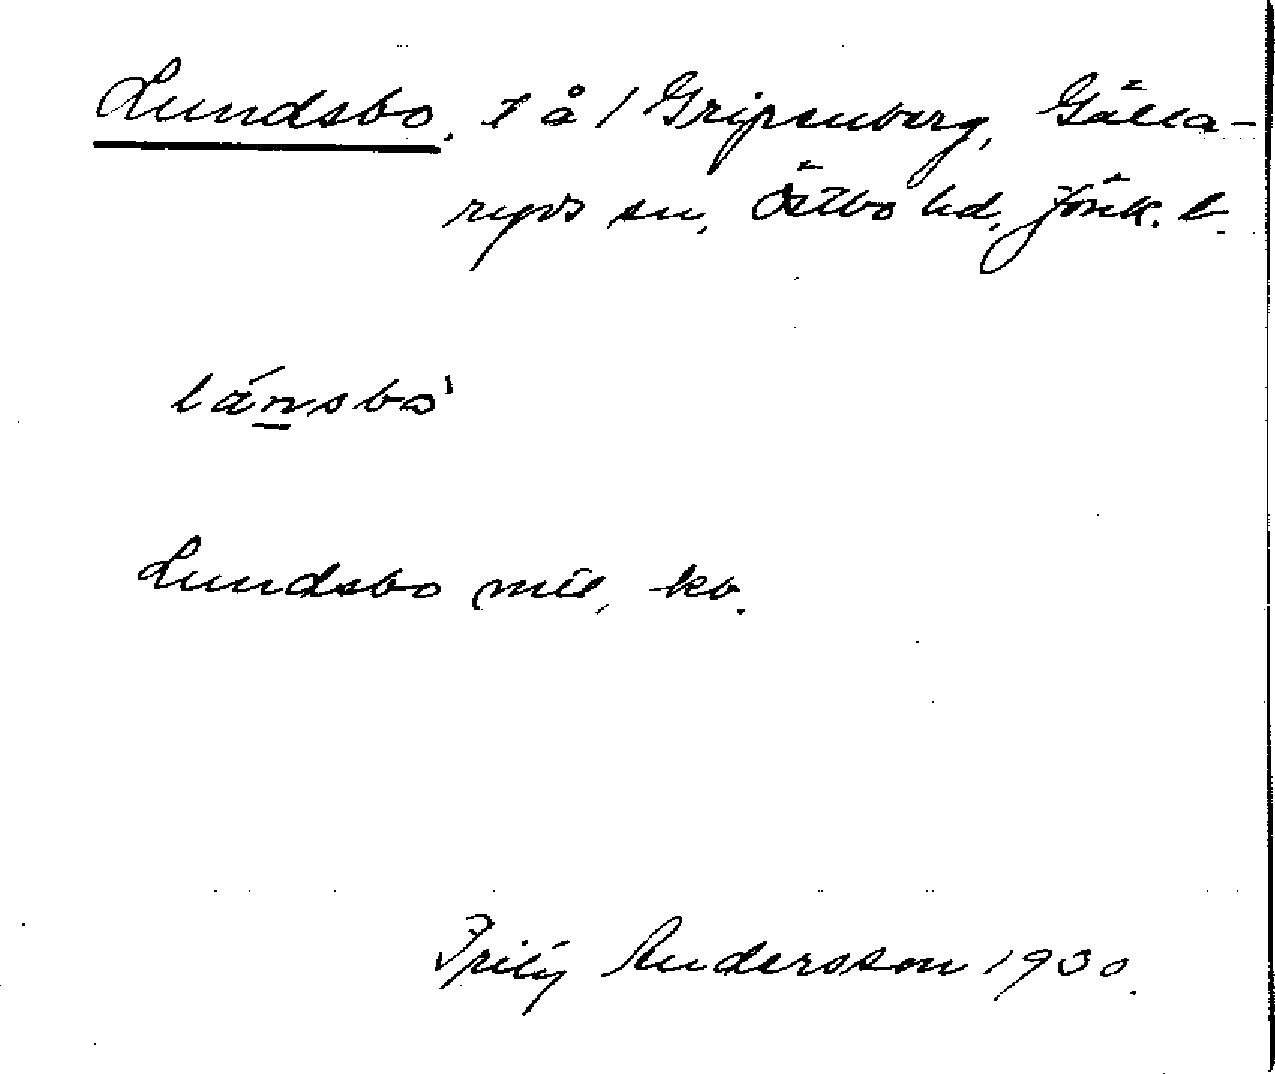 Lundsbo. t å / Gripenberg, Gälla-
ryds sn, Östbo hd, Jönk. l.
lánsbo'
Lundsbo mil, kv.
Andersson 1930.